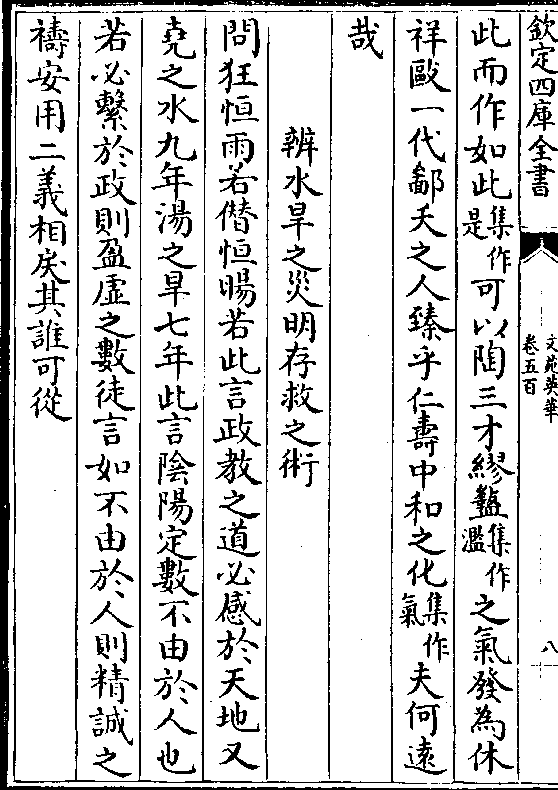 欽定四庫全書
文苑英華
卷五百
八
此而作如此集作是可以陶三才繆盭集作濫之氣發為休
祥毆一代鄙夭之人臻乎仁壽中和之化集作氣夫何遠
哉
辨水旱之災明存救之術
問狂恒雨若僭恒暘若此言政教之道必感於天地又
堯之水九年湯之旱七年此言陰陽定數不由於人也
若必繫於政則盈虛之數徒言如不由於人則精誠之
禱安用二義相戾其誰可從